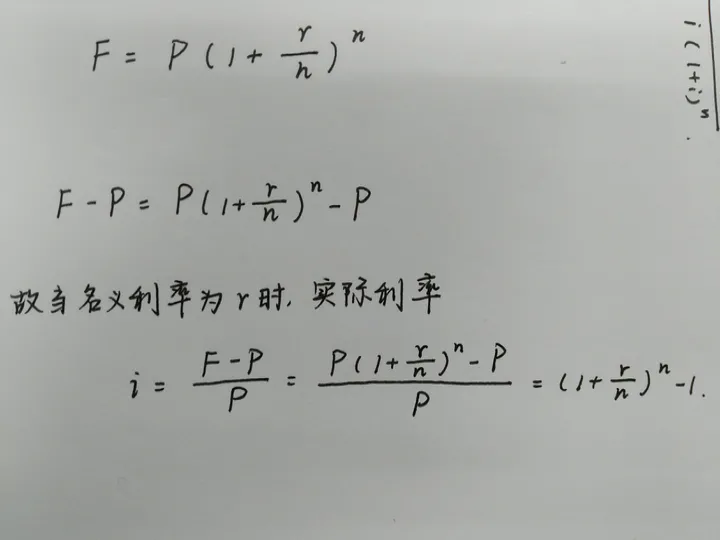 F = P(1+r/n)^n
F-P = P(1+r/n)^n-P
故当名义利率为r时,实际利率
i = (F-P)/P = (P(1+r/n)^n-P)/P = (1+r/n)^n-1.
i(1+i)^n.